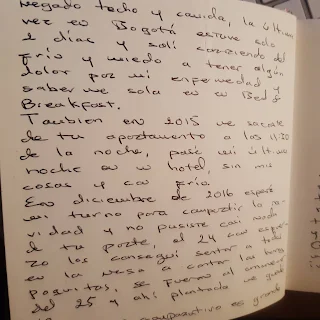 negado techo y comida, la última
vez en Bogotá estuve solo
2 días y salí corriendo del
frío y miedo a tener algún
dolor por mi enfermedad y
saberme sola en un Bed &
Breakfast.
Tambien en 2015 me sacaste
de tu apartamento a las 11:30
de la noche, pasé mi última
noche en un hotel, sin mis
cosas y con frío.
En diciembre de 2016 esperé
mi turno para compartir la na-
vidad y no pusiste casi nada
de tu parte, el 24 con esfuer-
zo los conseguí sentar a todos
en la mesa a contar las horas
poquitos, se fueron al amanecer
del 25 y ahí plantada me quedé
comparativo es grande